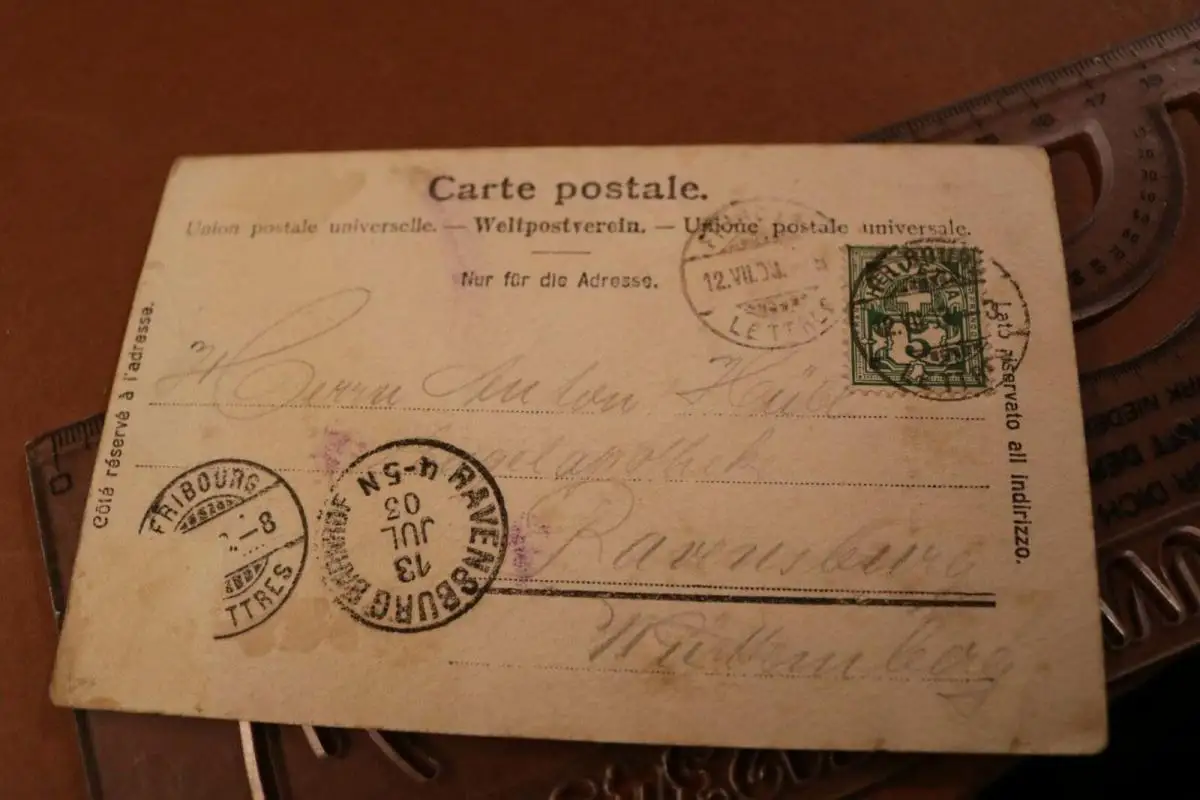 Carte postale.
Union postale universelle. — Weltpostverein. — Unione postale universale.
Nur für die Adresse.
12.VII.03.
LETTRES
HELVETIA
5
Côté réservé à l'adresse.
Lato riservato all indirizzo.
Herrn Anton
Ravensburg
Württemberg
FRIBOURG
–8
TTRES
RAVENSBURG BAHNHOF
13
JUL
03
4-5N